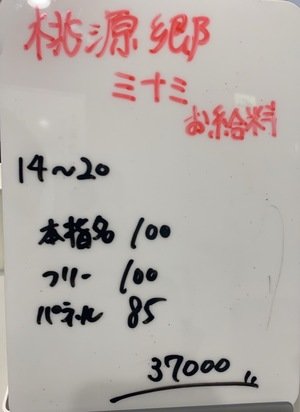 桃源郷
三十三
お給料
14〜20
本指名 100
フリー 100
パネル 85
37000〃